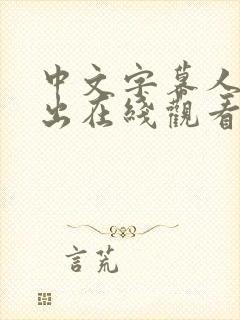 中文字幕人
出在綫觀看
言荒